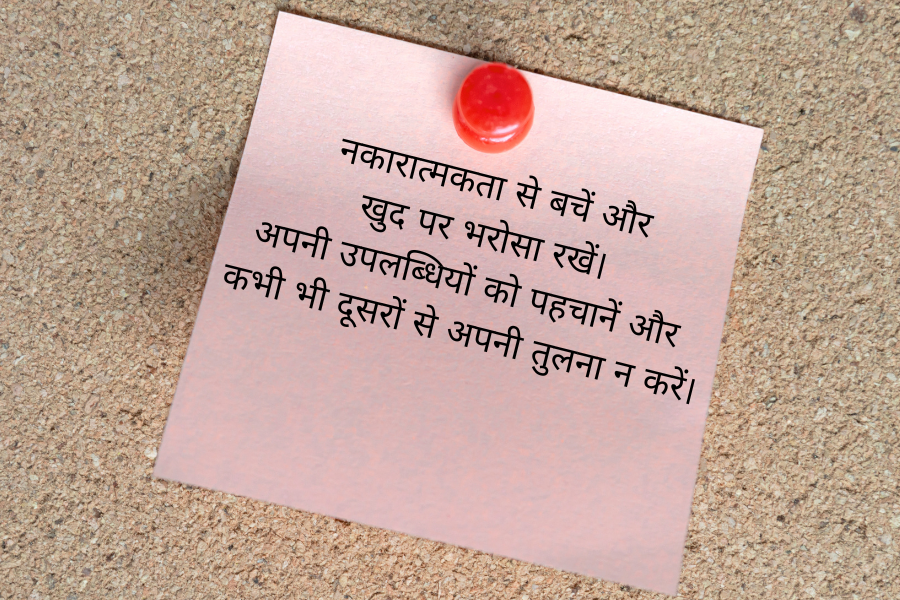 नकारात्मकता से बचें और
खुद पर भरोसा रखें।
अपनी उपलब्धियों को पहचानें और
कभी भी दूसरों से अपनी तुलना न करें।